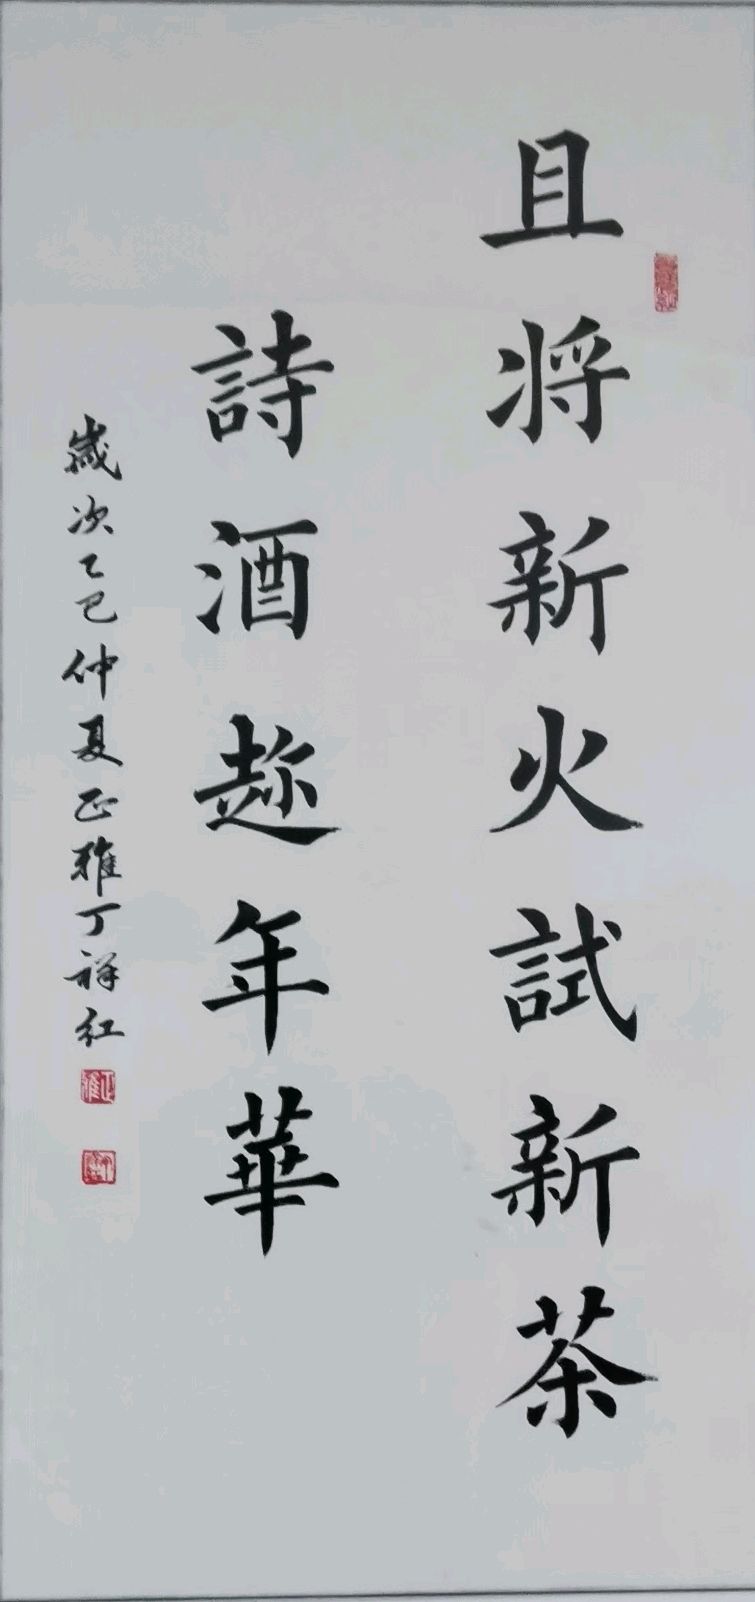 且将新火試新茶
詩酒趂年華
歲次乙巳仲夏正雅丁祥红
正雅